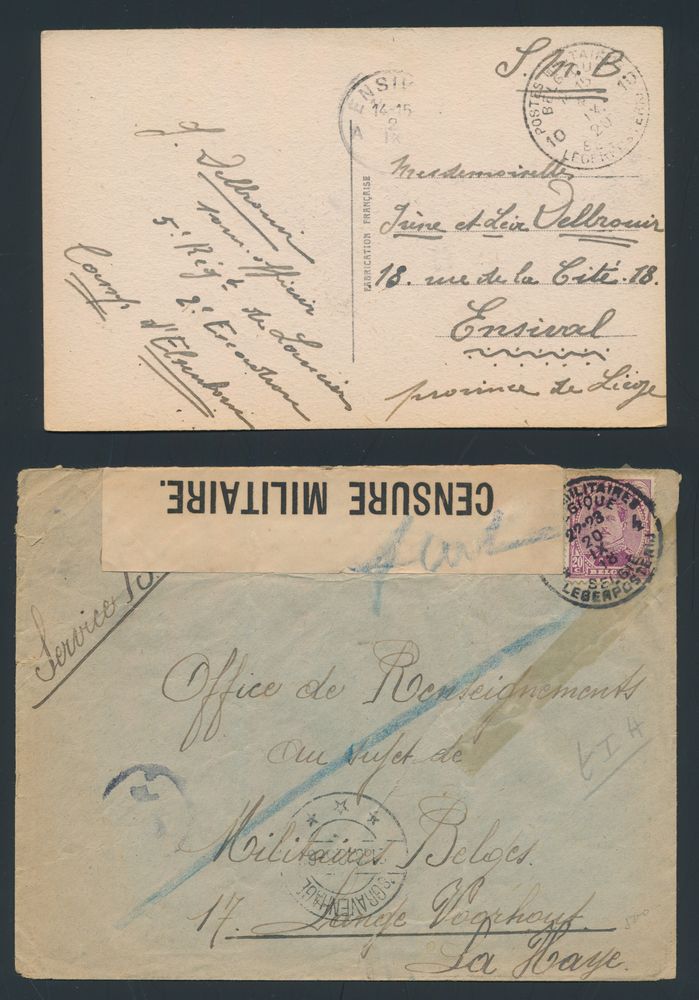 S.M.B.
POSTES MILITAIRES
BELGIQUE
15
20
10 10
LEGERPOSTERIJ
ENSIVAL
14-15
2
IX
J. Delbrouir
sous-officier
5e Régt de Lanciers
2e Escadron
Camp d'Elsenborn
FABRICATION FRANÇAISE
Mesdemoiselles
Irène et Léa Delbrouir
18. rue de la Cité. 18.
Ensival
province de Liège
CENSURE MILITAIRE.
MILITAIRES
BELGIQUE 4
22-23
20
IX
BELGIE
LEGERPOSTERIJ
20 c BELG
Service
Office de Renseignements
au sujet de
Militaires Belges.
17. Lange Voorhout.
La Haye.
'S GRAVENHAGE